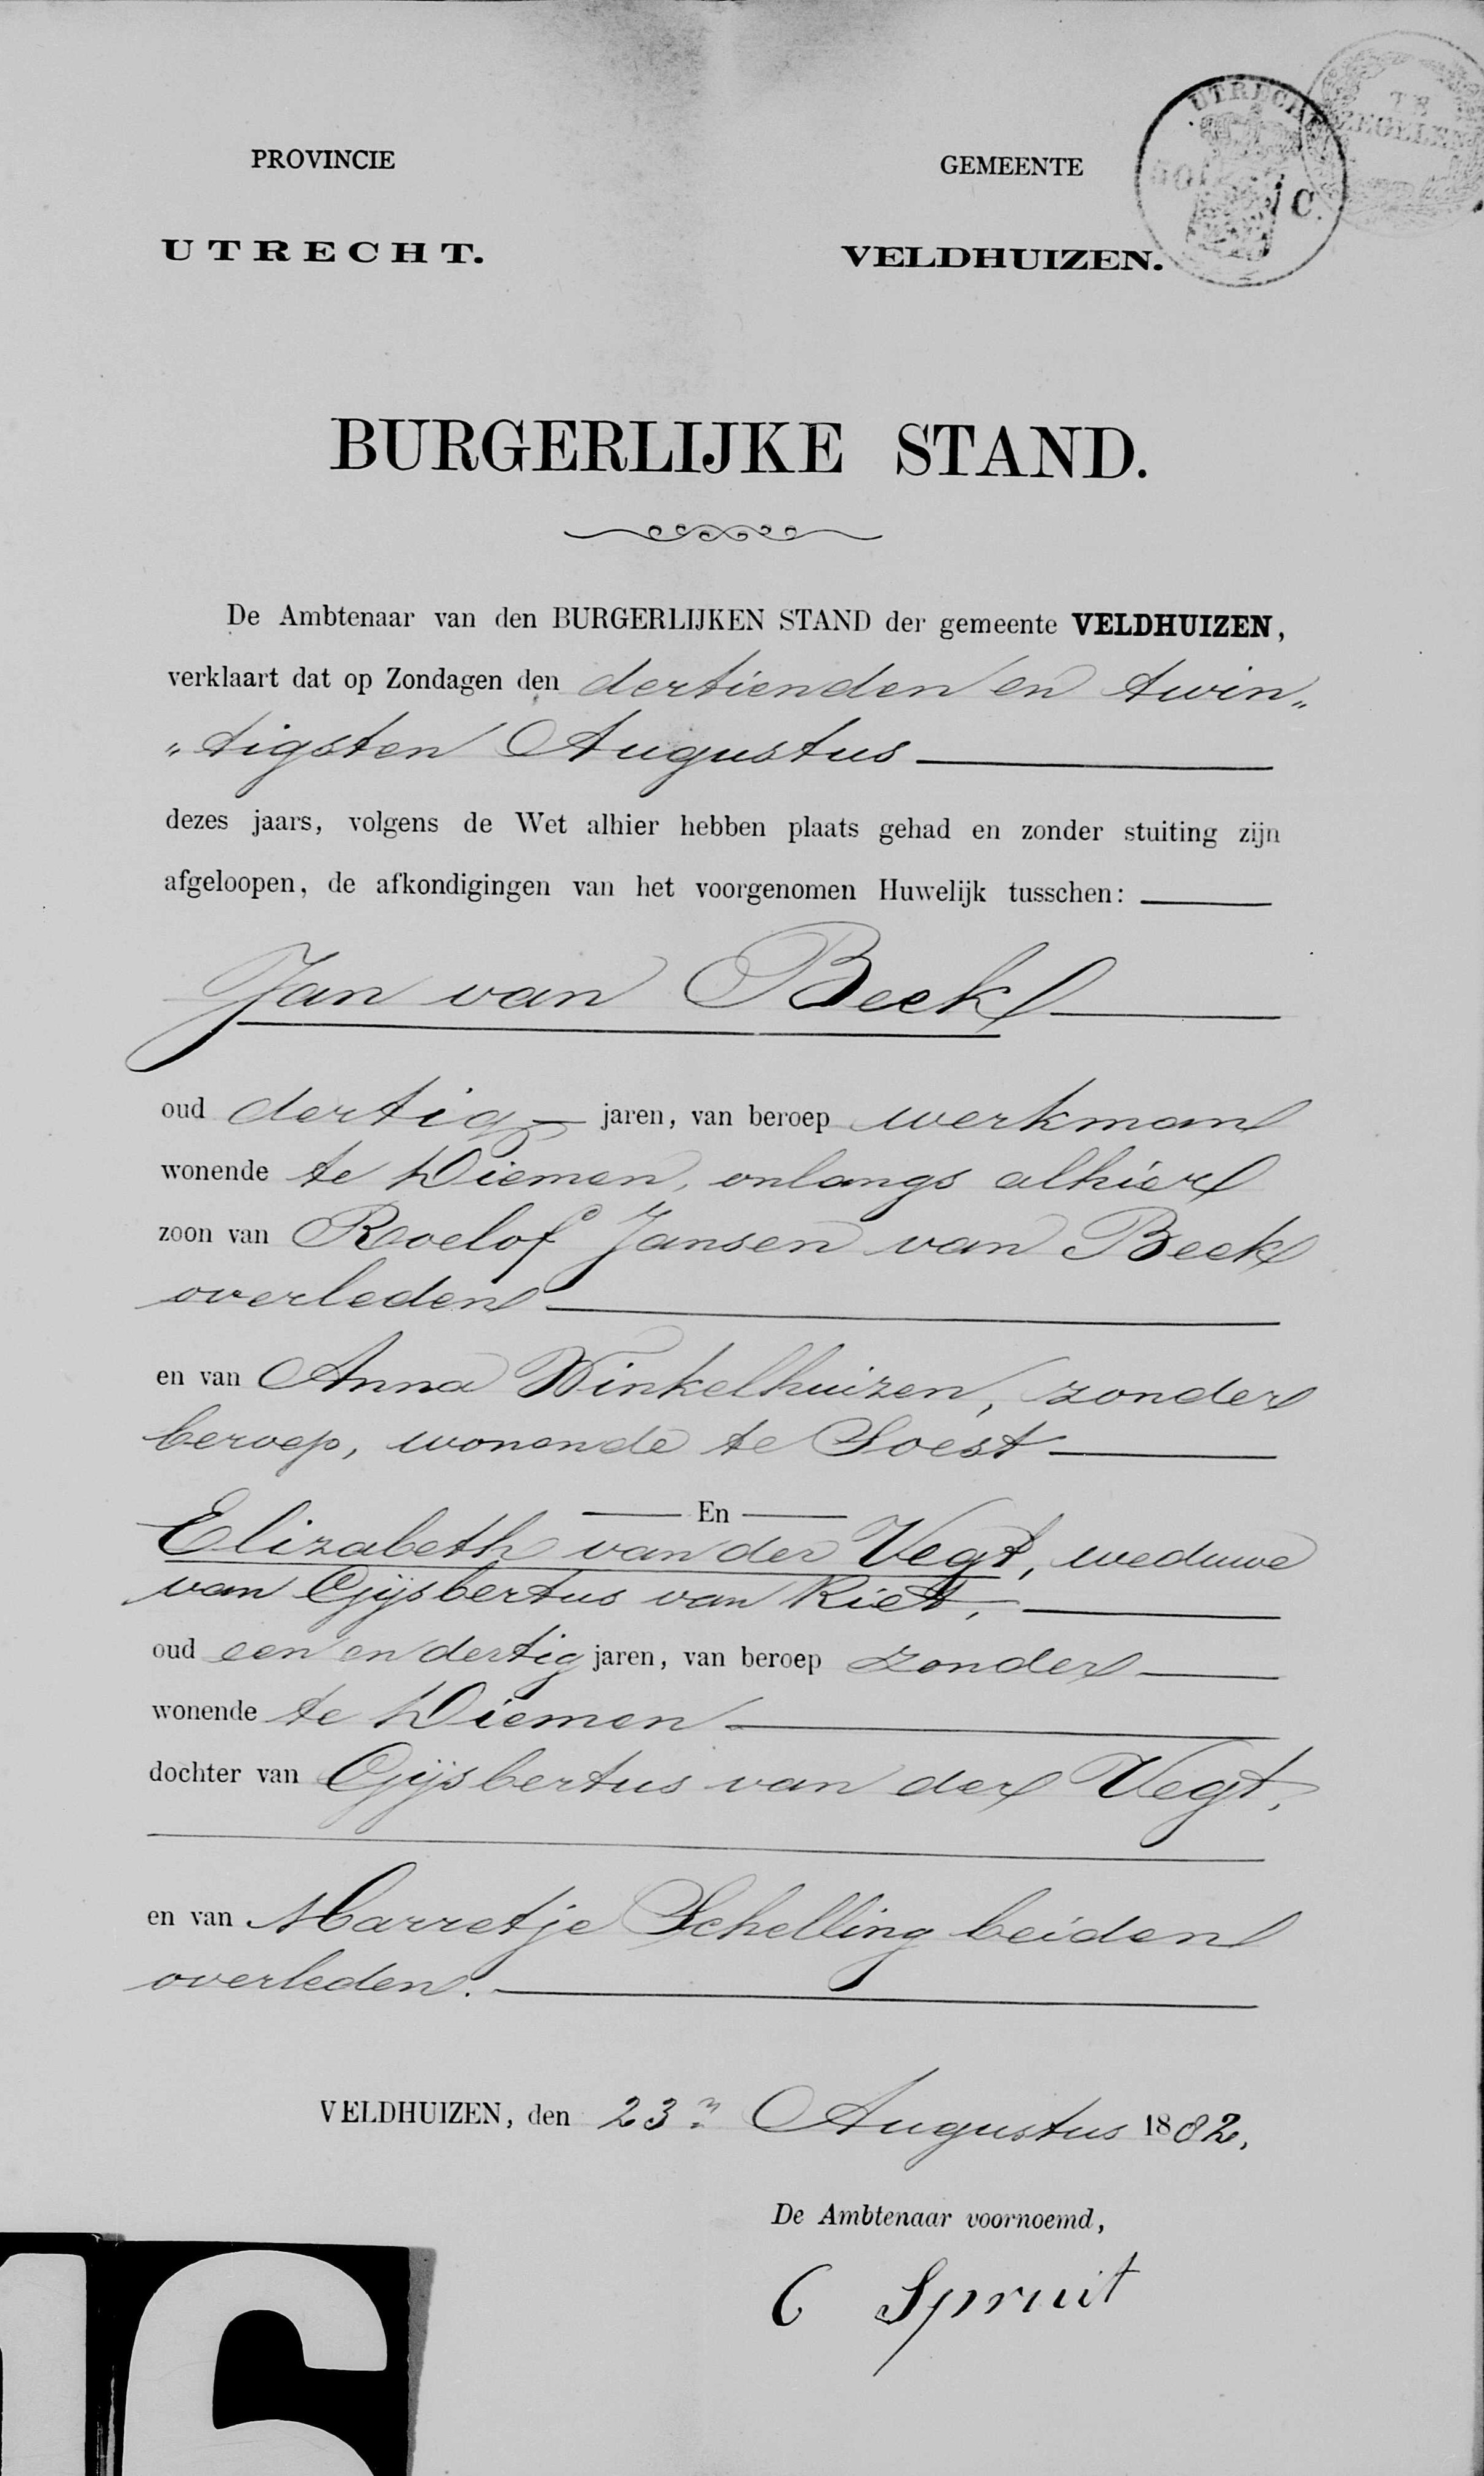 PROVINCIE
UTRECHT.
GEMEENTE
VELDHUIZEN.
UTRECHT
50 C.
TE
ZEGELEN
BURGERLIJKE STAND.
De Ambtenaar van den BURGERLIJKEN STAND der gemeente VELDHUIZEN,
verklaart dat op Zondagen den dertienden en twin„
„tigsten Augustus
dezes jaars, volgens de Wet alhier hebben plaats gehad en zonder stuiting zijn
afgeloopen, de afkondigingen van het voorgenomen Huwelijk tusschen:
Jan van Beek
oud dertig jaren, van beroep werkman
wonende te Diemen, onlangs alhier
zoon van Roelof Jansen van Beek
overleden
en van Anna Winkelhuizen, zonder
beroep, wonende te Soest
En
Elizabeth van der Vegt, weduwe
van Gijsbertus van Riet,
oud een en dertig jaren, van beroep zonder
wonende te Diemen
dochter van Gijsbertus van der Vegt,
en van Marretje Schelling beiden
overleden.
VELDHUIZEN, den 23n Augustus 1882,
De Ambtenaar voornoemd,
C Spruit
16